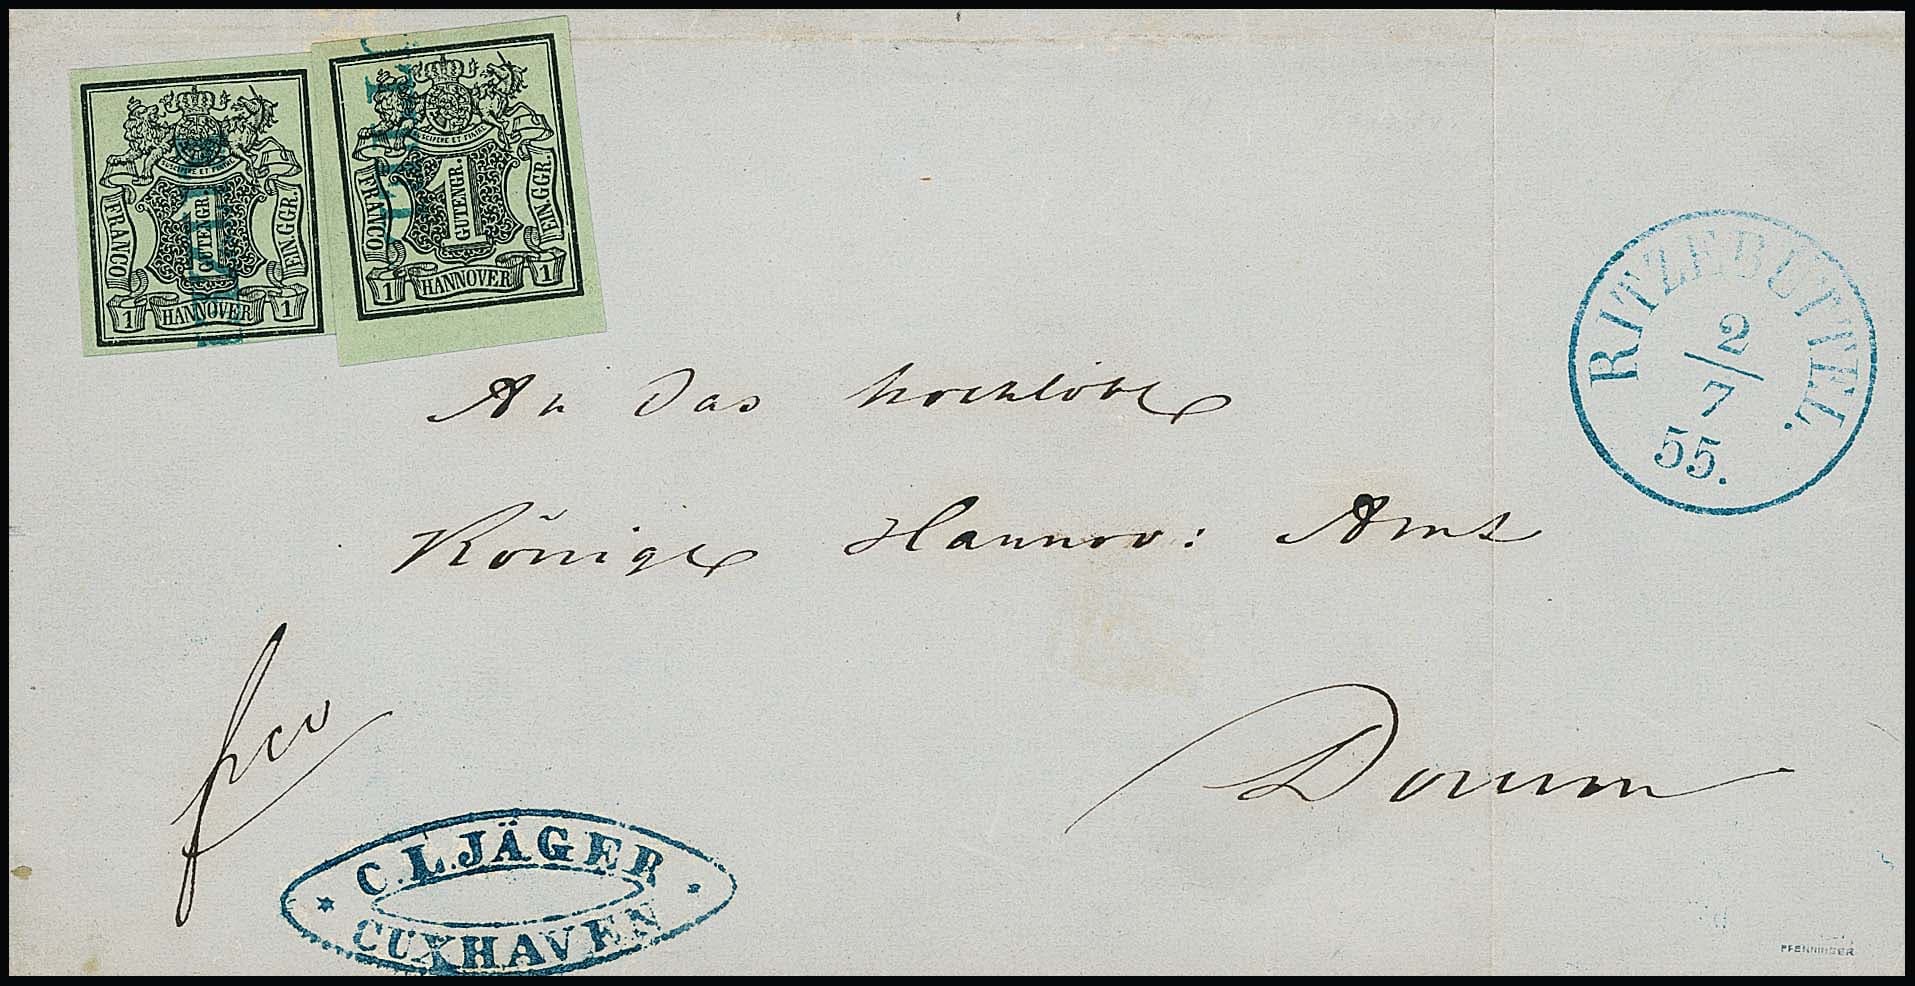 SUSCIPERE ET FINIRE
FRANCO
1
GUTENGR.
EIN.GGR.
1 HANNOVER 1
SUSCIPERE ET FINIRE
FRANCO
1
GUTENGR.
EIN.GGR.
1 HANNOVER 1
RITZEBÜTTEL.
2/7
55.
An das hochlöbl
Königl Hannov: Amt
frco
Dorum
C.L.JÄGER
CUXHAVEN
PFENNINGER